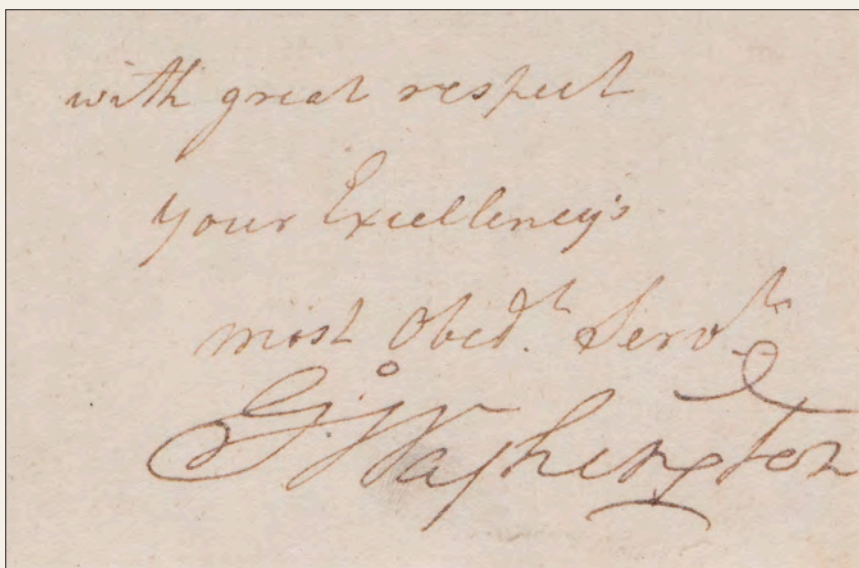 with great respect
your Excellency's
most Obedt. Servt.
Go: Washington